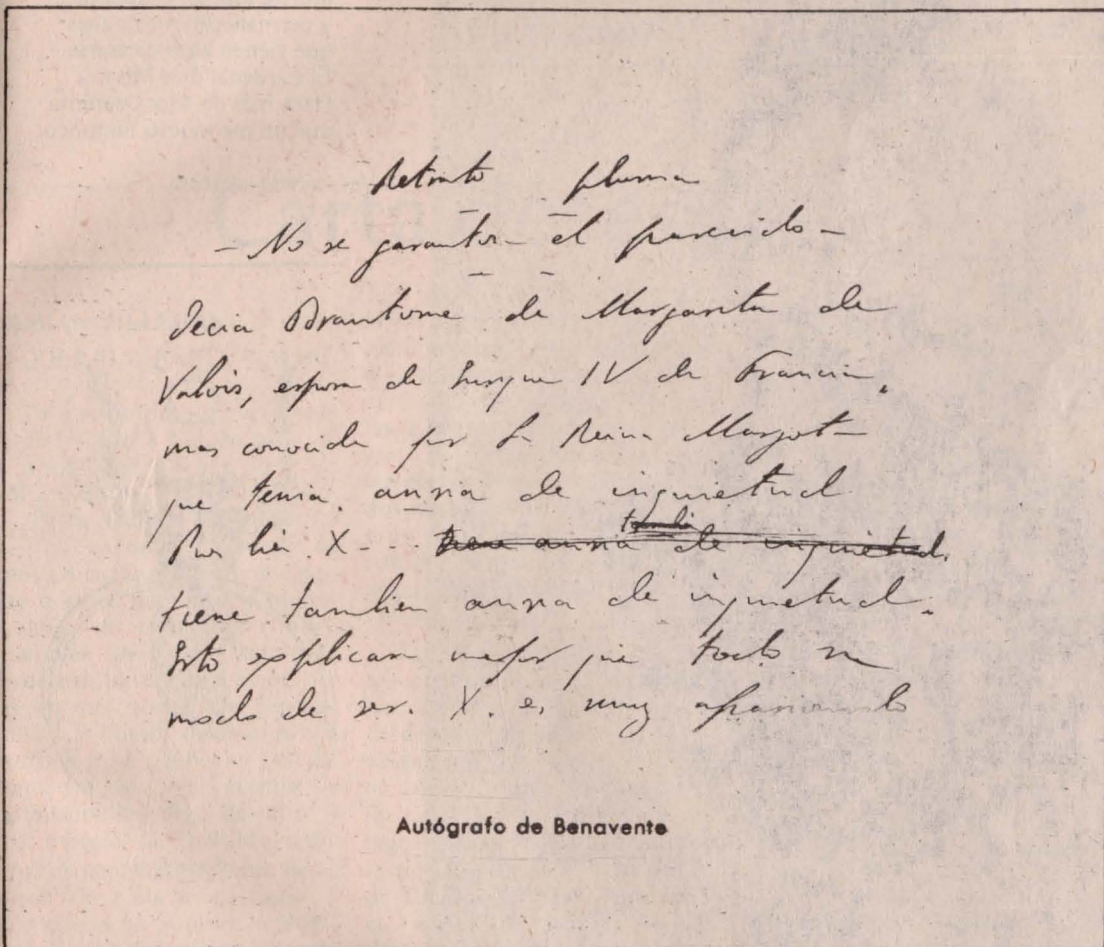 Retrato pluma
— No se garantiza el parecido —
Decia Brantome de Margarita de
Valois, esposa de Enrique IV de Francia,
mas conocida por La Reina Margot —
que tenia ansia de inquietud
Pues bien X... tiene ansia tambien de inquietud.
tiene tambien ansia de inquietud.
Esto explicara mejor que todo su
modo de ser. X. es muy apasionado
Autógrafo de Benavente